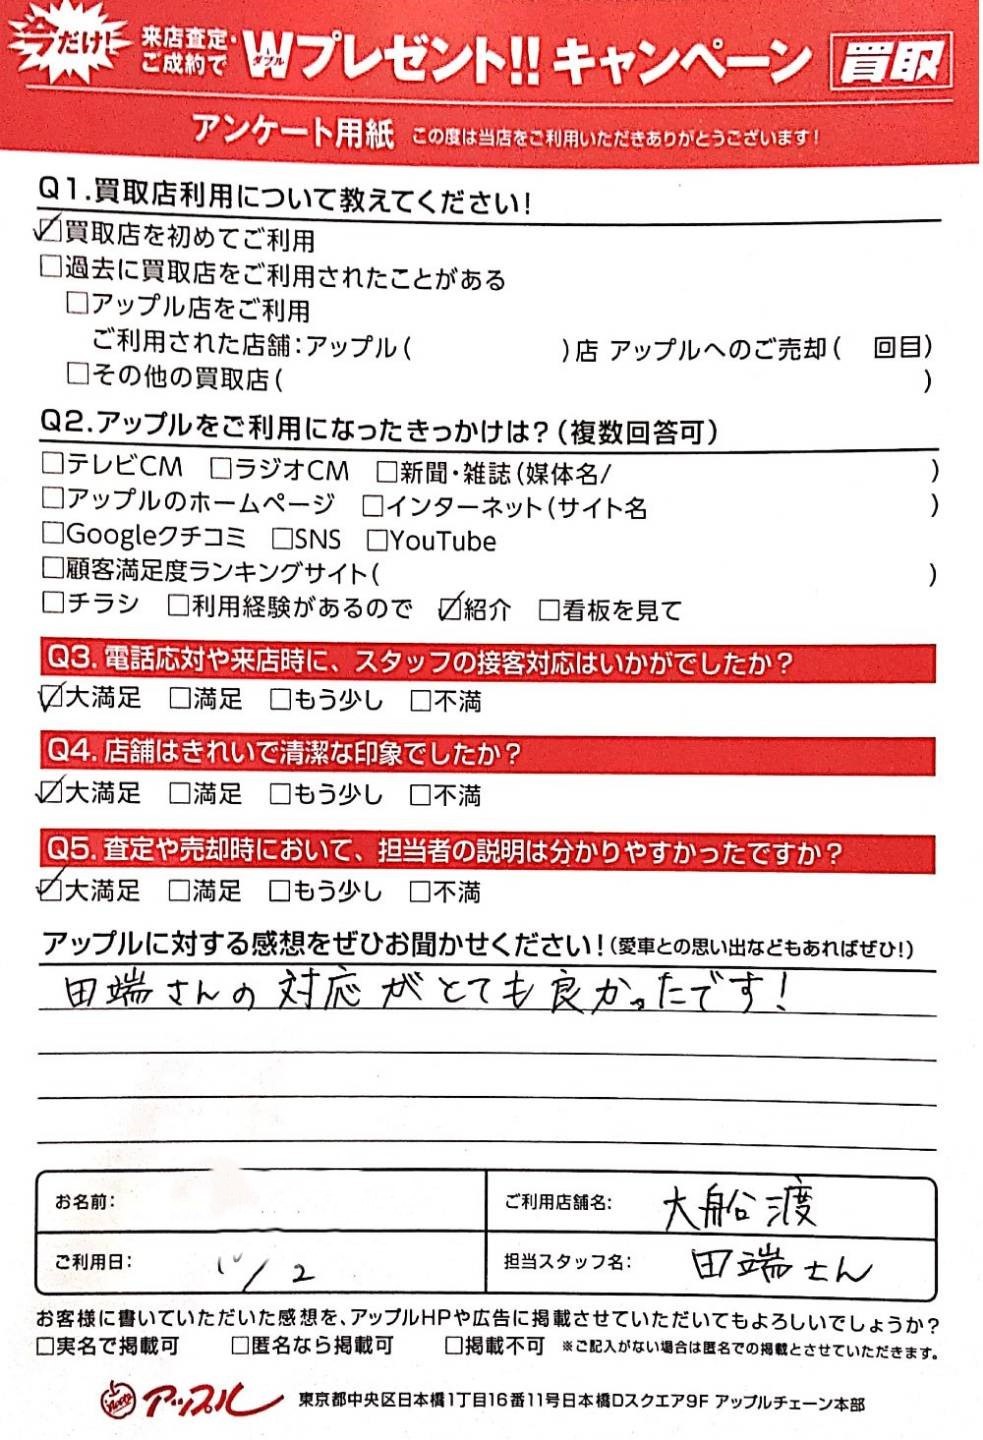 今だけ! 来店査定・ご成約で Wダブルプレゼント!! キャンペーン 買取
アンケート用紙 この度は当店をご利用いただきありがとうございます!
Q1.買取店利用について教えてください!
☑買取店を初めてご利用
□過去に買取店をご利用されたことがある
□アップル店をご利用
ご利用された店舗:アップル( )店 アップルへのご売却( 回目)
□その他の買取店( )
Q2.アップルをご利用になったきっかけは?(複数回答可)
□テレビCM □ラジオCM □新聞・雑誌(媒体名/ )
□アップルのホームページ □インターネット(サイト名 )
□Googleクチコミ □SNS □YouTube
□顧客満足度ランキングサイト( )
□チラシ □利用経験があるので ☑紹介 □看板を見て
Q3.電話応対や来店時に、スタッフの接客対応はいかがでしたか?
☑大満足 □満足 □もう少し □不満
Q4.店舗はきれいで清潔な印象でしたか?
☑大満足 □満足 □もう少し □不満
Q5.査定や売却時において、担当者の説明は分かりやすかったですか?
☑大満足 □満足 □もう少し □不満
アップルに対する感想をぜひお聞かせください!(愛車との思い出などもあればぜひ!)
田端さんの対応がとても良かったです!
お名前: ご利用店舗名: 大船渡
ご利用日: 10/2 担当スタッフ名: 田端さん
お客様に書いていただいた感想を、アップルHPや広告に掲載させていただいてもよろしいでしょうか?
□実名で掲載可 □匿名なら掲載可 □掲載不可 ※ご記入がない場合は匿名での掲載とさせていただきます。
Apple アップル 東京都中央区日本橋1丁目16番11号日本橋Dスクエア9F アップルチェーン本部